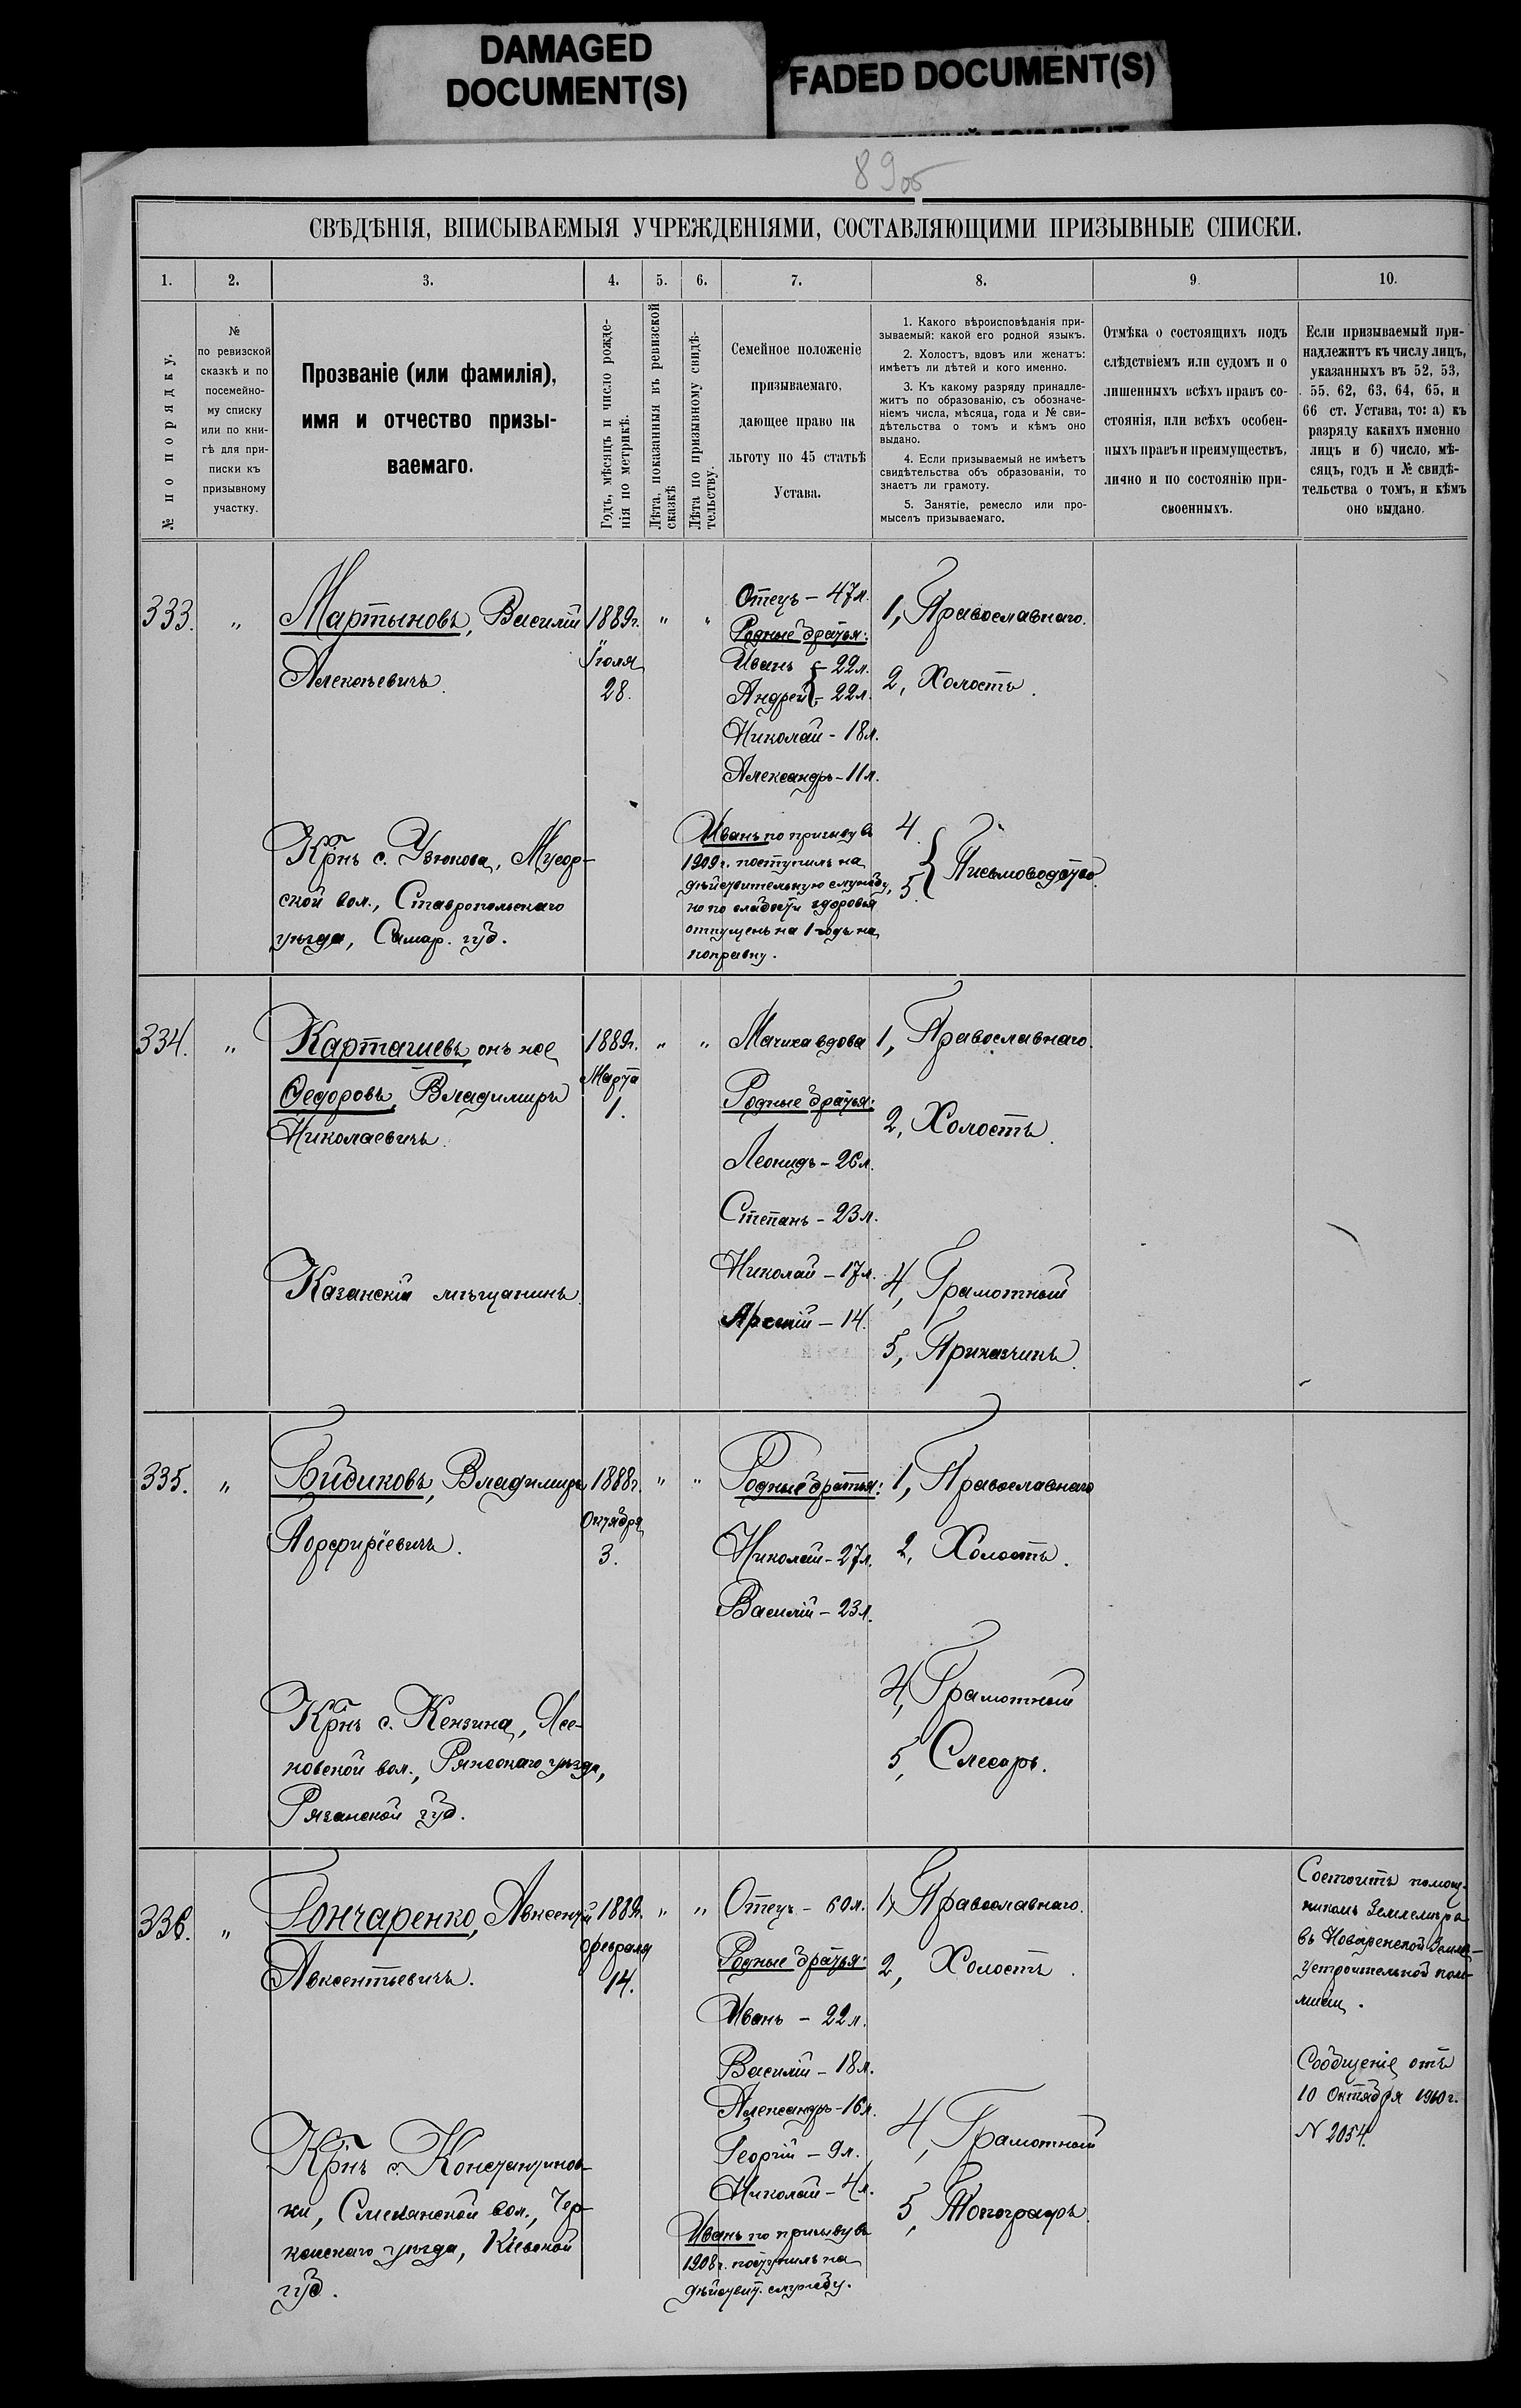 DAMAGED
DOCUMENT(S)
FADED DOCUMENT(S)
89об
СВѢДѢНІЯ, ВПИСЫВАЕМЫЯ УЧРЕЖДЕНІЯМИ, СОСТАВЛЯЮЩИМИ ПРИЗЫВНЫЕ СПИСКИ.
1. 2. 3. 4. 5. 6. 7. 8. 9. 10.
№ по порядку.
№
по ревизской
сказкѣ и по
посемейно-
му списку
или по кни-
гѣ для при-
писки къ
призывному
участку.
Прозваніе (или фамилія),
имя и отчество призы-
ваемаго.
Годъ, мѣсяцъ и число рожде-
нія по метрикѣ.
Лѣта, показанныя въ ревизской
сказкѣ
Лѣта по призывному свидѣ-
тельству.
Семейное положеніе
призываемаго,
дающее право на
льготу по 45 статьѣ
Устава.
1. Какого вѣроисповѣданія при-
зываемый: какой его родной языкъ.
2. Холостъ, вдовъ или женатъ:
имѣетъ ли дѣтей и кого именно.
3. Къ какому разряду принадле-
житъ по образованію, съ обозначе-
ніемъ числа, мѣсяца, года и № сви-
дѣтельства о томъ и кѣмъ оно
выдано.
4. Если призываемый не имѣетъ
свидѣтельства объ образованіи, то
знаетъ ли грамоту.
5. Занятіе, ремесло или про-
мыселъ призываемаго.
Отмѣка о состоящихъ подъ
слѣдствіемъ или судомъ и о
лишенныхъ всѣхъ правъ со-
стоянія, или всѣхъ особен-
ныхъ правъ и преимуществъ,
лично и по состоянію при-
своенныхъ.
Если призываемый при-
надлежитъ къ числу лицъ,
указанныхъ въ 52, 53,
55, 62, 63, 64, 65, и
66 ст. Устава, то: а) къ
разряду какихъ именно
лицъ и б) число, мѣ-
сяцъ, годъ и № свидѣ-
тельства о томъ, и кѣмъ
оно выдано.
333. "
Мартыновъ, Василій
Алексѣевичъ.
Крнъ с. Узюкова, Мусор-
ской вол., Ставропольскаго
уѣзда, Самар. губ.
1889г.
Іюля
28.
" "
Отецъ - 47л.
Родные братья:
Иванъ - 22л.
Андрей - 22л.
Николай - 18л.
Александръ - 11л.
Иванъ по призыву въ
1909г. поступилъ на
дѣйствительную службу,
но по слабости здоровья
отпущенъ на 1 годъ на
поправку.
1, Православнаго.
2, Холостъ.
4
5 } Письмоводство.
334. "
Карташевъ, онъ же
Ѳедоровъ, Владимиръ
Николаевичъ.
Казанскій мѣщанинъ.
1889г.
Марта
1.
" "
Мачиха вдова
Родные братья:
Леонидъ - 26л.
Степанъ - 23л.
Николай - 17л.
Арсеній - 14.
1, Православнаго.
2, Холостъ.
4, Грамотный
5, Приказчикъ.
335. "
Бибиковъ, Владимиръ
Порфирьевичъ.
Крнъ с. Кензина,
Ряжскаго уѣзда,
Рязанской губ.
1888г.
Октября
3.
" "
Родные братья:
Николай - 27л.
Василій - 23л.
1, Православнаго
2, Холостъ.
4, Грамотный
5, Слесарь.
336. "
Гончаренко, Авксентій
Авксентьевичъ.
Крнъ с. Константинов-
ки, Смелянской вол., Чер-
касскаго уѣзда, Кіевской
губ.
1889г.
Февраля
14.
" "
Отецъ - 60л.
Родные братья:
Иванъ - 22л.
Василій - 18л.
Александръ - 16л.
Георгій - 9л.
Николай - 4л.
Иванъ по призыву въ
1908г. поступилъ на
дѣйствит. службу.
1, Православнаго.
2, Холостъ.
4, Грамотный
5, Топографъ.
Состоитъ помощ-
никомъ Землемѣра
въ Землe-
устроительной ком-
мисіи.
Сообщеніе отъ
10 Октября 1910г.
№ 2054.